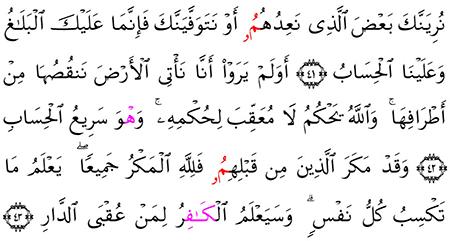 نُرِيَنَّكَ بَعْضَ ٱلَّذِى نَعِدُهُمُۥ أَوْ نَتَوَفَّيَنَّكَ فَإِنَّمَا عَلَيْكَ ٱلْبَلَـٰغُ
وَعَلَيْنَا ٱلْحِسَابُ ﴿٤١﴾ أَوَلَمْ يَرَوْا۟ أَنَّا نَأْتِى ٱلْأَرْضَ نَنقُصُهَا مِنْ
أَطْرَافِهَا ۚ وَٱللَّهُ يَحْكُمُ لَا مُعَقِّبَ لِحُكْمِهِۦ ۚ وَهْوَ سَرِيعُ ٱلْحِسَابِ
﴿٤٢﴾ وَقَدْ مَكَرَ ٱلَّذِينَ مِن قَبْلِهِمُۥ فَلِلَّهِ ٱلْمَكْرُ جَمِيعًا ۖ يَعْلَمُ مَا
تَكْسِبُ كُلُّ نَفْسٍ ۗ وَسَيَعْلَمُ ٱلْكَـٰفِرُ لِمَنْ عُقْبَى ٱلدَّارِ ﴿٤٣﴾